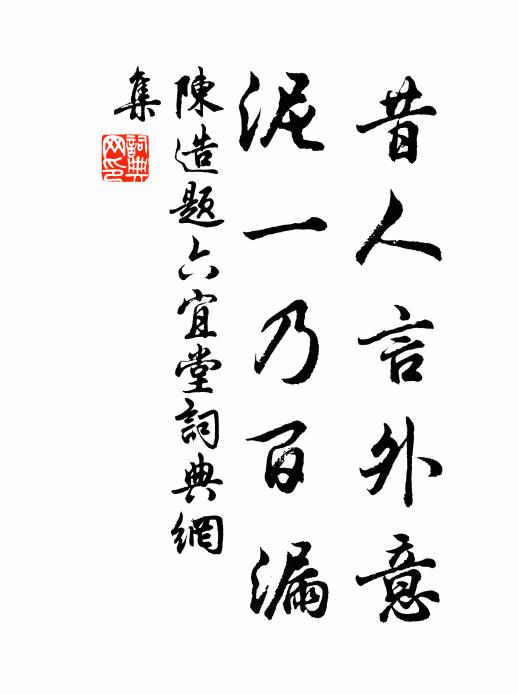 昔人言外意
泥一乃百漏
陳造題六宜堂詞典網
集
詞典網印